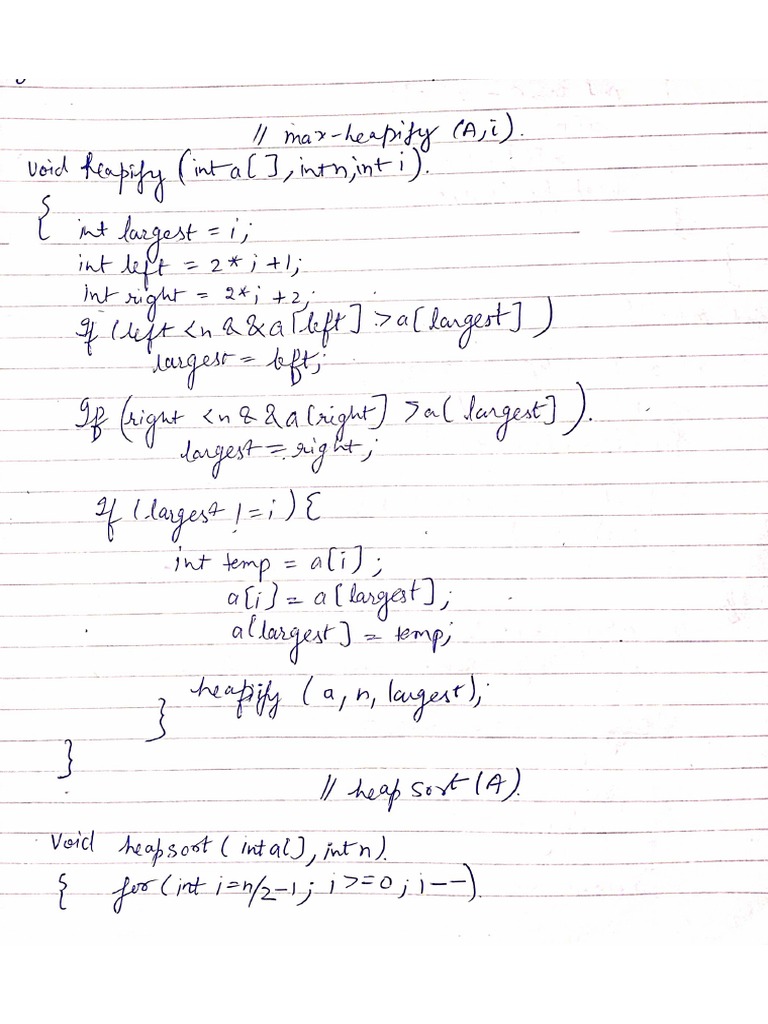 // max-heapify (A,i).
void heapify (int a[], int n, int i).
{ int largest = i;
int left = 2* i +1;
int right = 2*i +2;
If (left <n && a[left] >a[largest])
largest = left;
If (right <n && a[right] >a[largest]).
largest = right;
If (largest != i) {
int temp = a[i];
a[i] = a[largest];
a[largest] = temp;
heapify (a, n, largest);
}
}
// heap sort (A).
void heapsort (int a[], int n).
{ for (int i=n/2-1; i>=0; i--).